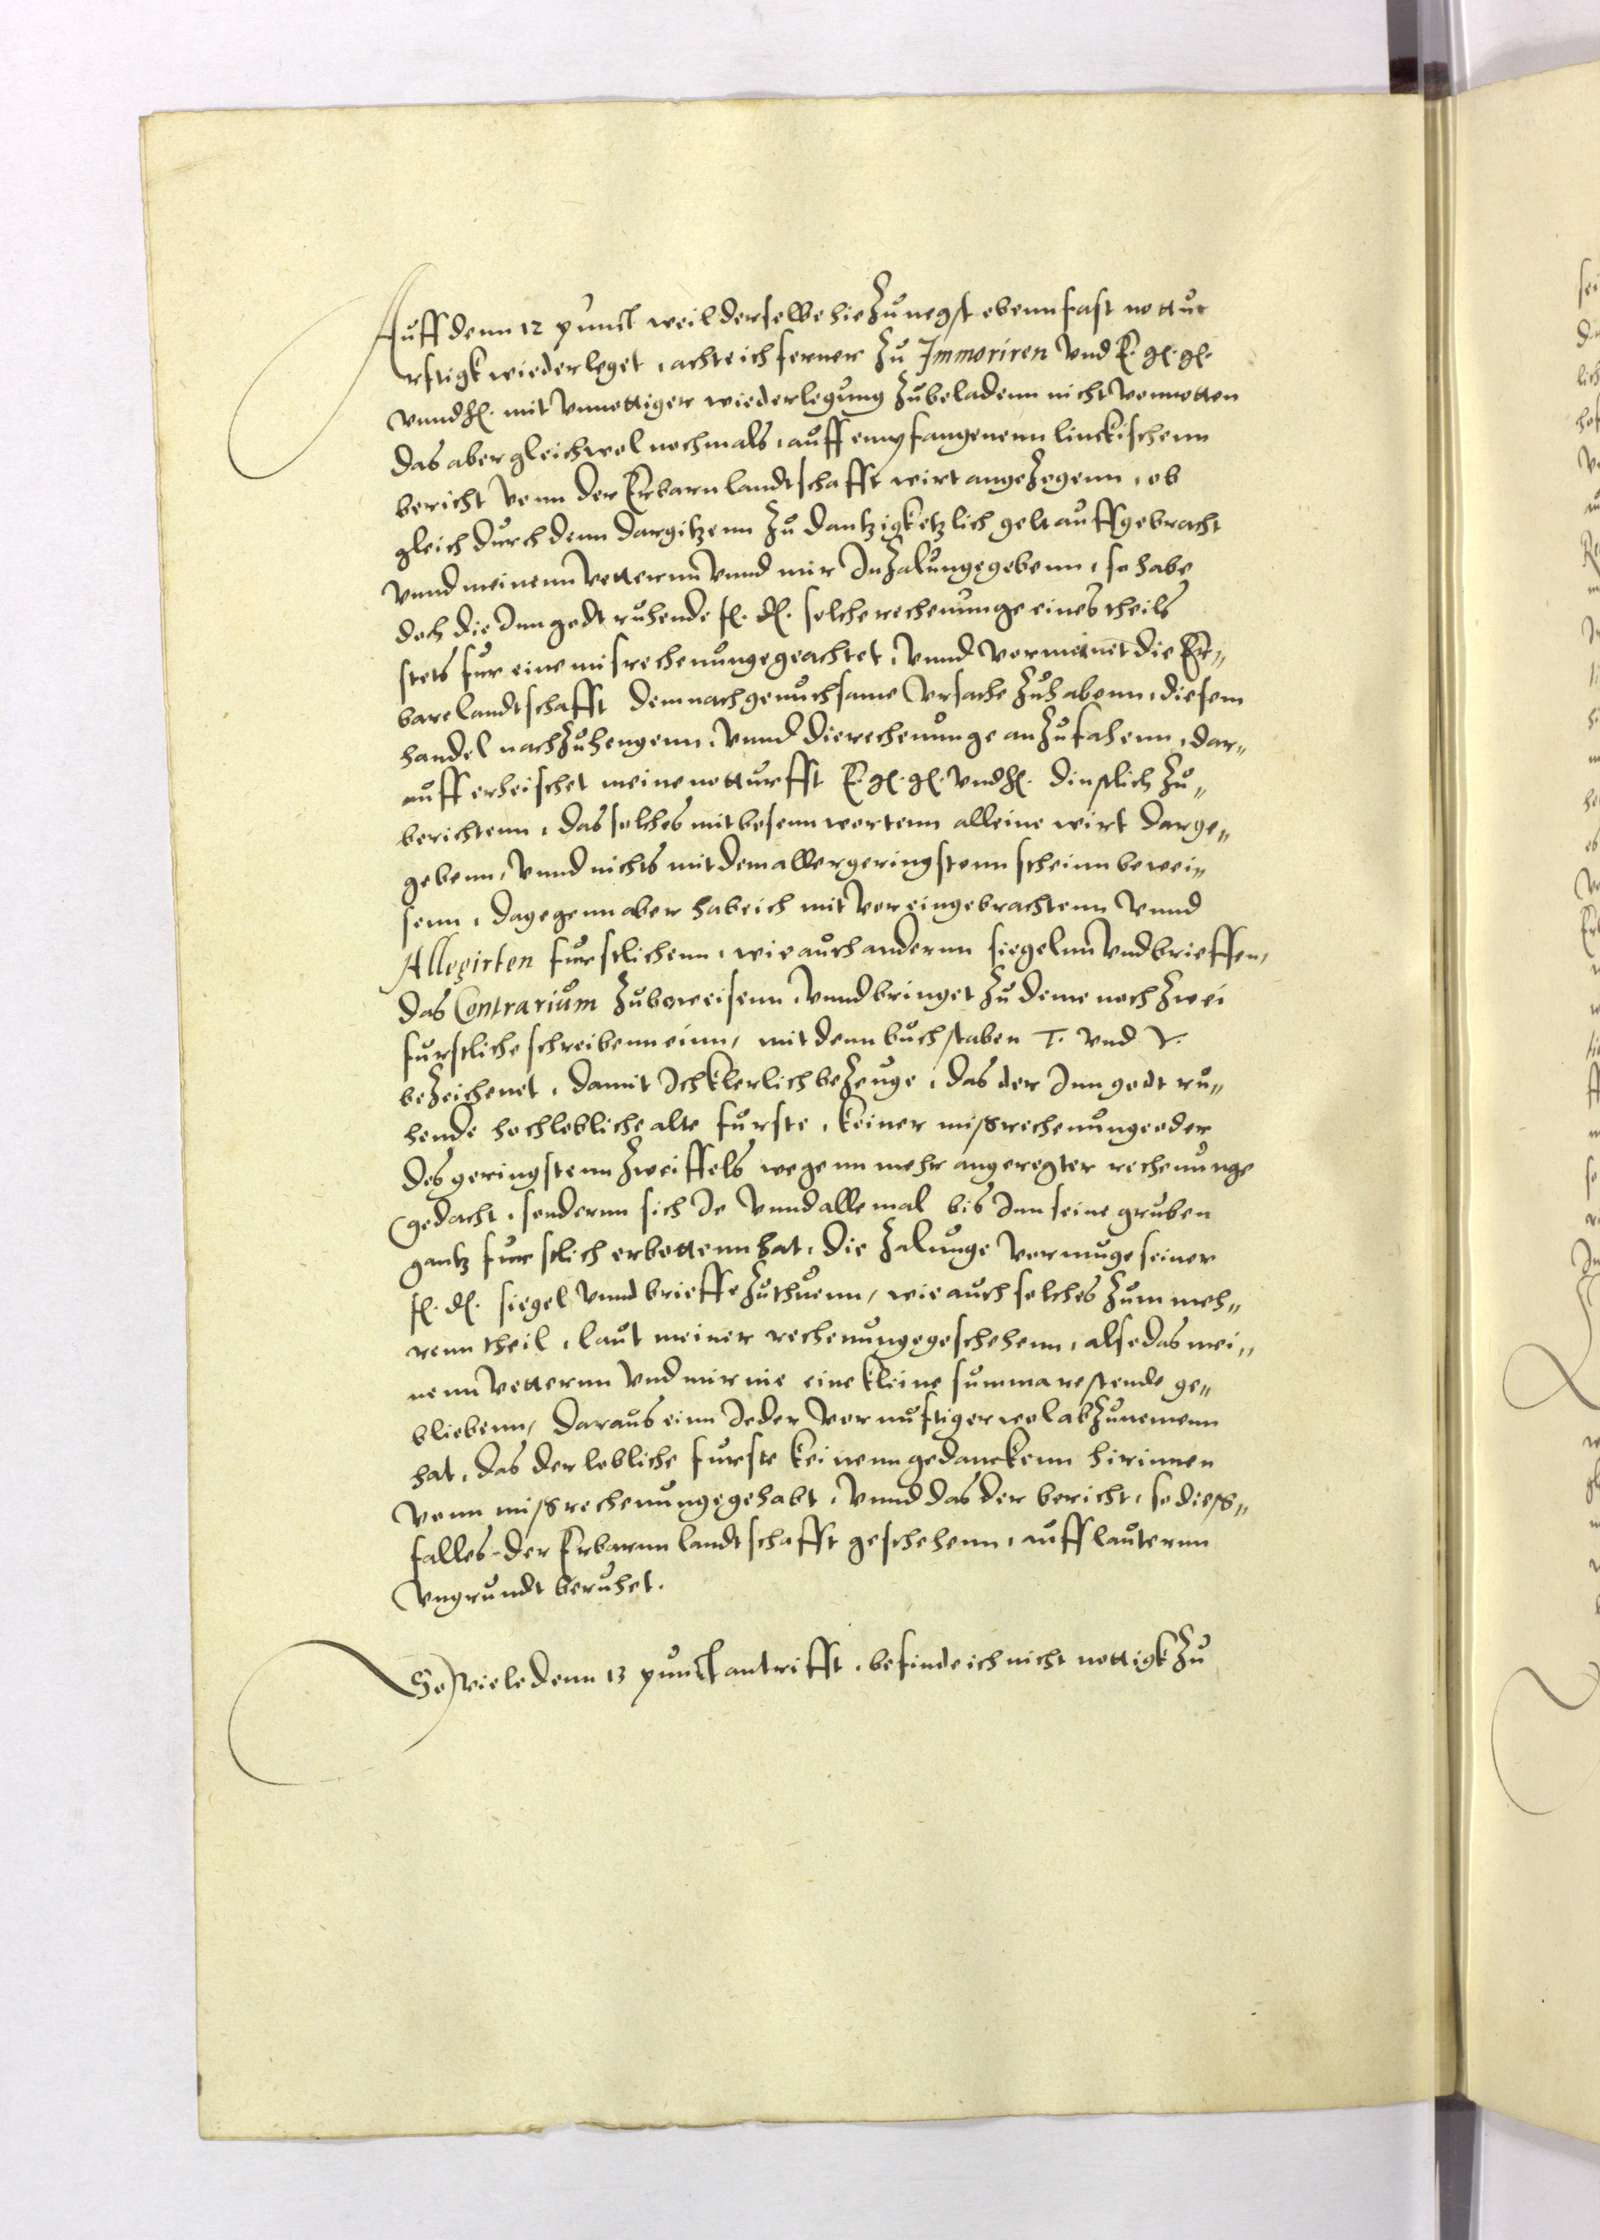 Auff denn 12 punct weil derselbe hie Zu negst ebenn fast nottur
rftigk wiederleget, achte ich ferner Zu Immoriren vnd E. gl. gl.
vnnd hl. mit vnnottiger wiederlegung Zubeladenn nicht vonnotten
das aber gleichwol nochmals, auff empfangenenn linckischenn
bericht vonn der Erbarn landtschafft wirt angeZogenn, ob
gleich durch denn dargitzenn Zu dantzigk etzlich gelt auffgebracht
vnnd meinenn vetternn vnnd mir InZalung gegebenn, so habe
doch die Inn godt ruhende fl. dl. solche rechenunge eines theils
stets fur eine misrechenunge geachtet, vnnd vormeinet die Er„
bare landtschafft demnach genuchsame vrsache Zuhabenn, diesem
handel nachZuhengenn, vnnd die rechenunge anZufahenn, dar„
auff erheischet meine notturfft E. gl. gl. vnd hl. dinstlich Zu„
berichtenn, das solches mit bosenn wortenn alleine wirt darge„
gebenn, vnnd nichts mit dem allergeringstenn scheinn bewei„
senn, dagegenn aber habe ich mit vor eingebrachtenn vnnd
Allegirten furstlichenn, wie auch andernn siegelnn vnd brieffen,
das Contrarium Zubeweisenn, vnnd bringe Zu deme noch Zwei
furstliche schreibenn einn, mit denn buchstaben T. vnd V.
beZeichenet, damit Ich klerlich beZeuge, das der Inn godt ru„
hende hochlobliche alte furste, keiner missrechenunge oder
des geringstenn Zweiffels wegenn mehr angeregter rechenunge
gedacht, sondernn sich Ie vnnd allemal bis Inn seine gruben
gantz furstlich erbottenn hat, die Zalunge vermuge seiner
fl. dl. siegel vnnd brieffe Zuthuenn, wie auch solches Zum meh„
renn theil, laut meiner rechenunge geschehenn, also das mei„
nenn vetternn vnd mir nie eine kleine summa restende ge„
bliebenn, daraus einn Ieder vornunftiger wol abZunemenn
hat, das der lobliche furste keinenn gedanckenn hirinnen
vonn missrechenunge gehabt, vnnd das der bericht, so diess„
falles der Erbarnn landtschafft geschehenn, auff lauternn
vngrundt beruhet.
So viele denn 13 punct antrifft, befinde ich nicht nottigk Zu